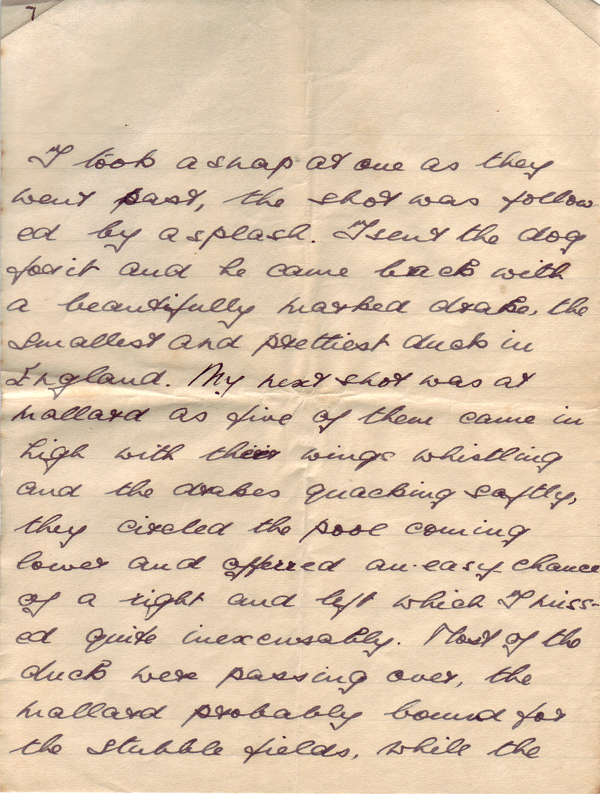 7
I took a snap at one as they
went past, the shot was follow
ed by a splash. I sent the dog
for it and he came back with
a beautifully marked drake, the
smallest and prettiest duck in
England. My next shot was at
mallard as five of them came in
high with their wings whistling
and the drakes quacking softly,
they circled the pool coming
lower and offerred an easy chance
of a right and left which I miss-
ed quite inexcusably. Most of the
duck were passing over, the
mallard probably bound for
the stubble fields, while the